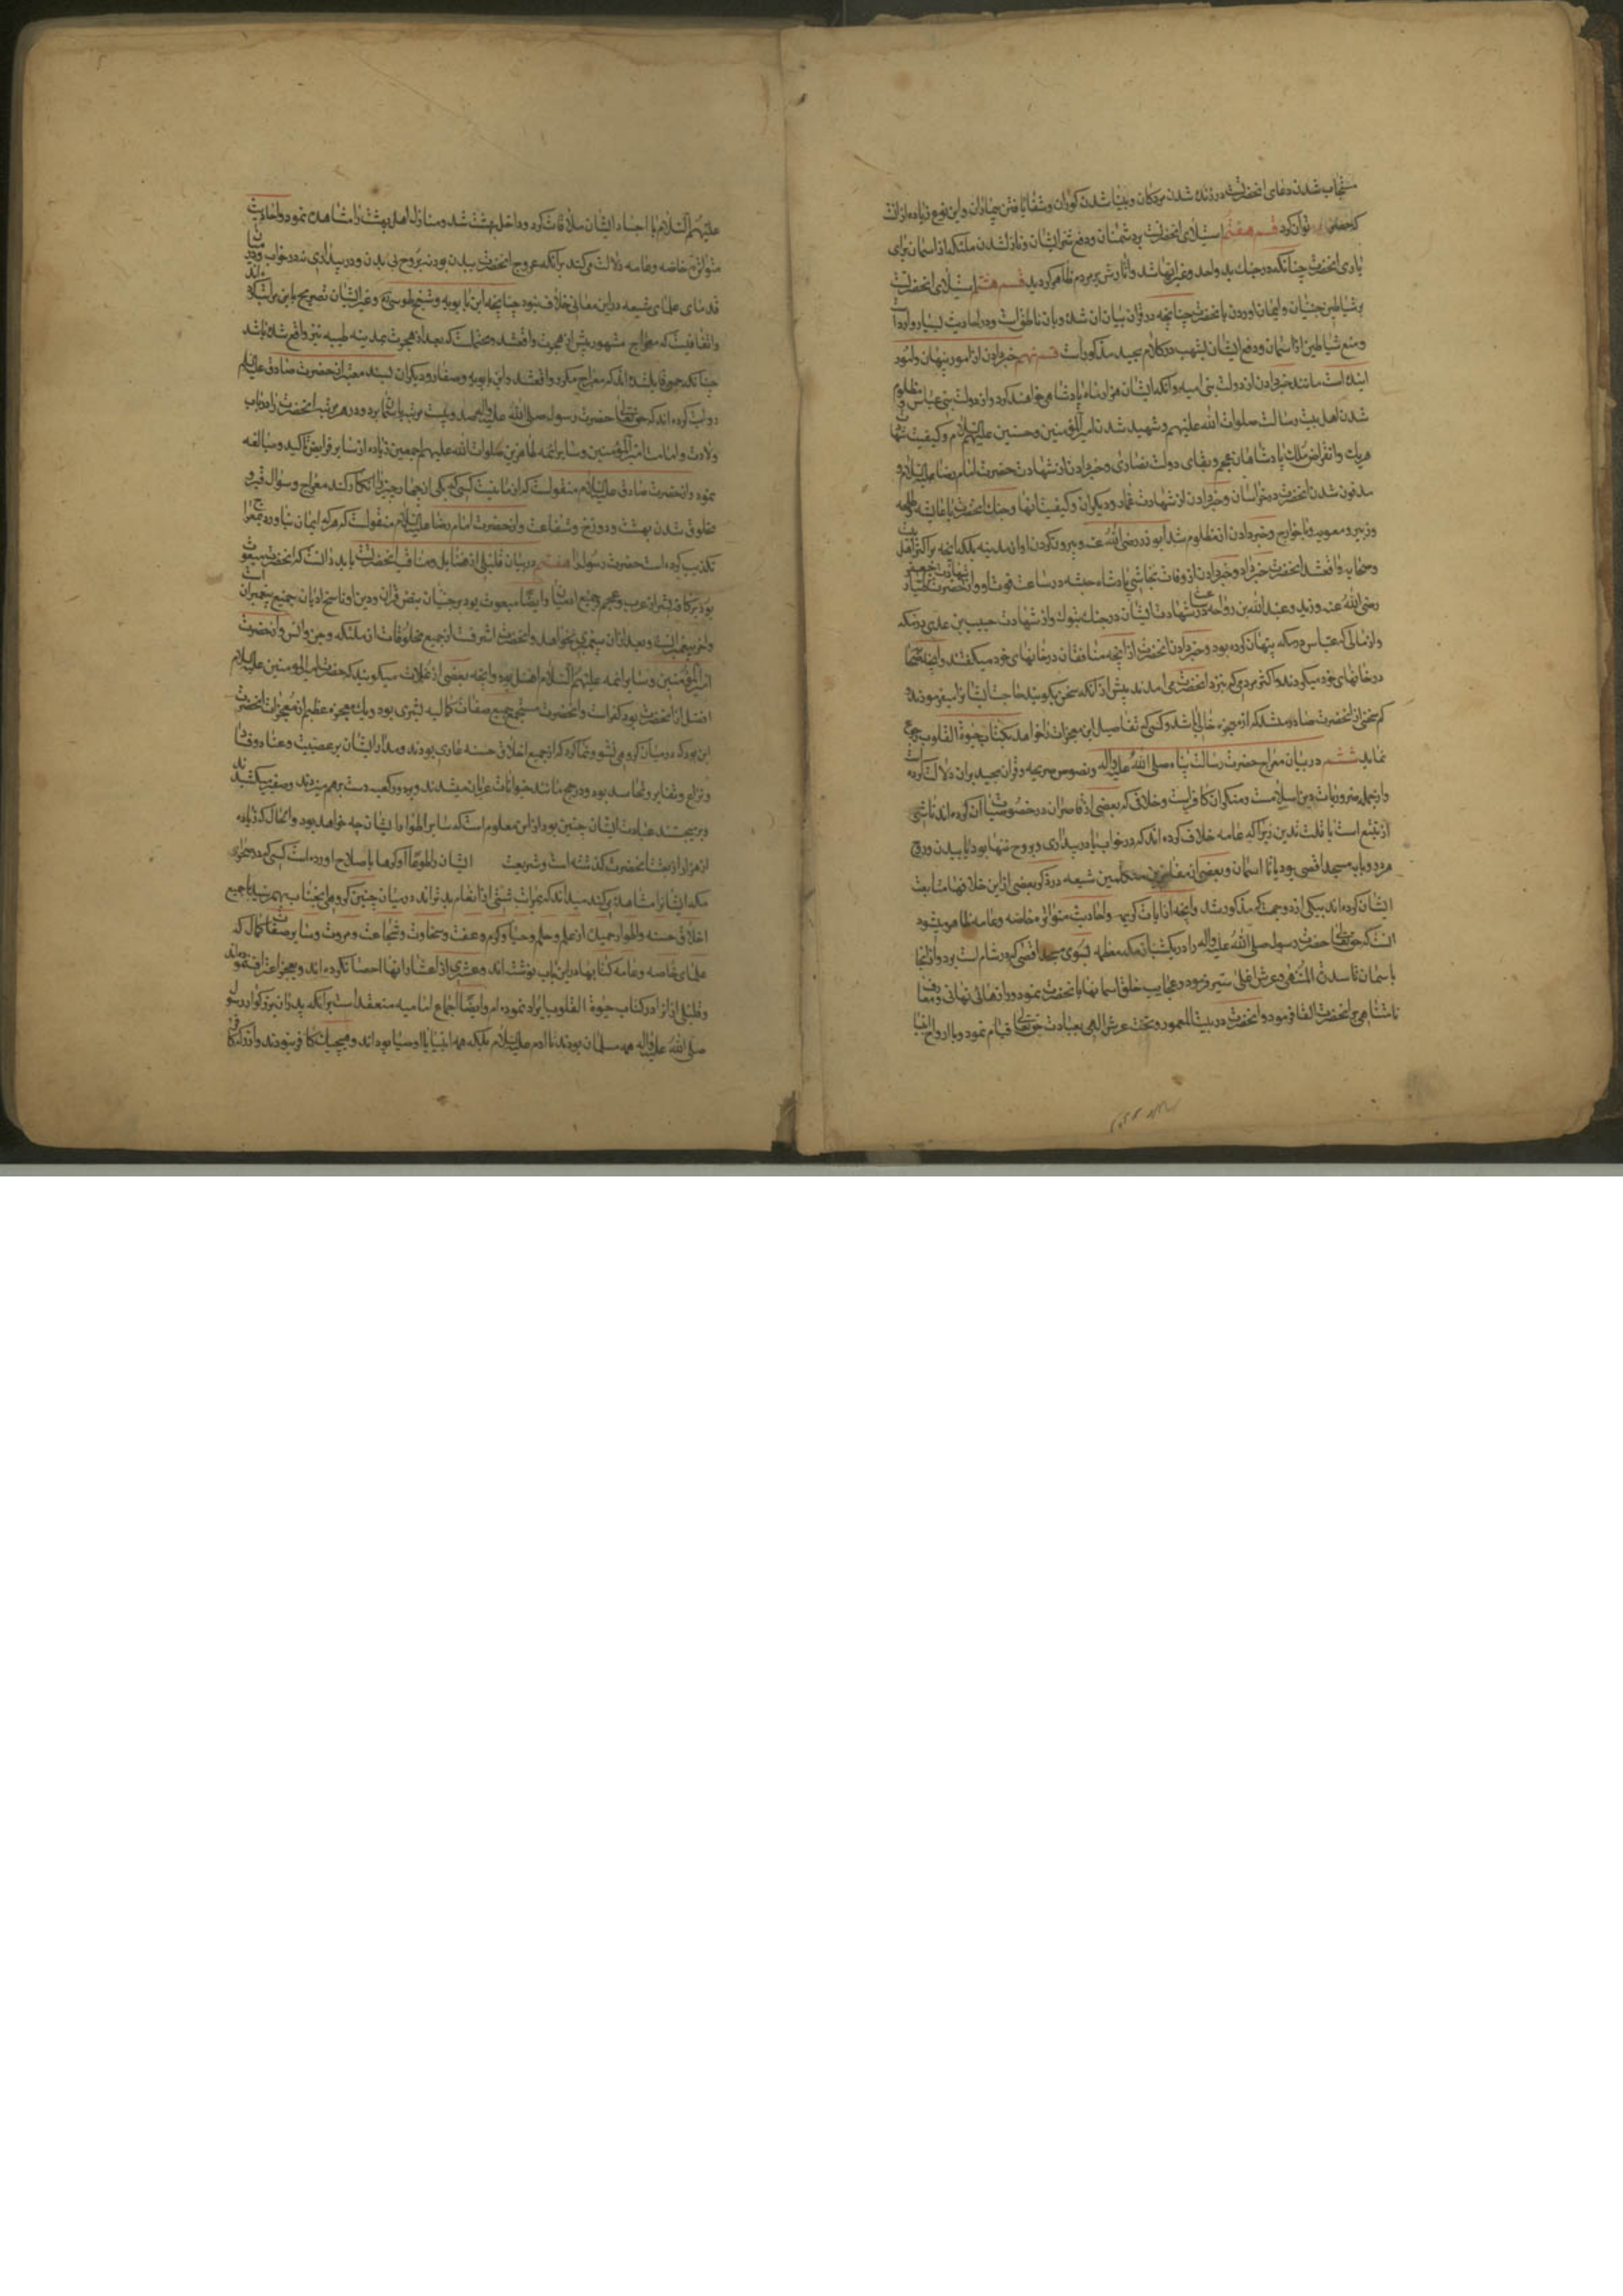 مستجاب شدن دعای انحضرت در زنده شدن مردکان و بینا شدن کوران و شفا یافتن بیماران و این نوع زیاده از انست
که حصر توان کرد قسم هفتم استیلای انحضرت بر دشمنان و دفع شر ایشان و نازل شدن ملئکه از اسمان برای
یاری انحضرت چنانکه در جنك بدر واحد وغیر انها شد واثارش بر مردم ظاهر کردید قسم هشتم استیلای انحضرت
بر شیاطین جنیان و ایمان اوردن با نحضرت چنانچه در قران بیان ان شده و بان ناطق است و در احادیث بسیار وارد است
و منع شیاطین از اسمان و دفع ایشان بشهب در کلام مجید مذکور است قسم نهم خبر دادن از امور پنهان و امور
اینده است مانند خبر دادن از دولت بنی امیه و انکه ایشان هزار ماه پادشاهی خواهند کرد و از دولت بنی عباس و مظلوم
شدن اهل بیت رسالت صلوات الله علیهم و شهید شدن امیر المؤمنین و حسنین علیهم السلام و کیفیت شهادت
هریك و انقراض ملك پادشاهان عجم و بقای دولت نصاری و خبر دادن از شهادت حضرت امام رضا علیه السلام و
مدفون شدن انحضرت در خراسان و خبر دادن از شهادت عمار و دیکران و کیفیت انها و جنك انحضرت با عایشه و طلحه
و زبیر و معویه و با خوارج و خبر دادن از مظلوم شدن ابوذر رضی الله عنه و بیرون کردن او از مدینه بلکه انچه بر اکثر اهل بیت
و صحابه واقع شد انحضرت خبر داد و خبر دادن از وفات نجاشی پادشاه حبشه در ساعت فوت او و از شهادت جعفر طیار
رضی الله عنه و زید و عبد الله بن رواحه در ساعت شهادت ایشان در جنك تبوك و از شهادت حبیب بن عدی در مکه
و از مالی که عباس در مکه پنهان کرده بود و خبر دادن انحضرت از انچه منافقان در خانهای خود میکفتند و انچه پنهان
در خانهای خود میکردند و اکثر مردمی که بنزد انحضرت می امدند پیش از انکه سخن بکویند حاجت ایشانرا میفرمودند
کم سخنی از انحضرت صادر میشد که از معجزه خالی باشد و کسی که تفاصیل این معجزات را خواهد بکتاب حیوة القلوب رجوع
نماید ششم در بیان معراج حضرت رسالت پناه صلی الله علیه واله و نصوص صریحه و قران مجید بران دلالت کرده است
و از جمله ضروریات دین اسلامست و منکر ان کافر است و خلافی که بعضی از قاصران در خصوصیات ان کرده اند ناشی
از تتبع است یا قلت تدین زیرا که عامه خلاف کرده اند که در خواب یا در بیداری و بروح تنها بود یا ببدن و روح
هر دو و یا به مسجد اقصی بود یا تا اسمان و بعضی از متکلمین شیعه در ذکر بعضی از این خلافها متابعت
ایشان کرده اند بیکی از دو جهت که مذکور شد و انچه از ایات کریمه و احادیث متواتره خاصه و عامه ظاهر میشود
انست که حق تعالی حضرت رسول صلی الله علیه واله را در یکشب از مکه معظمه بسوی مسجد اقصی که در شام است برد و از انجا
باسمان تا سدرة المنتهی و عرش اعلی سیر فرمود و عجایب خلق اسمانها با نحضرت نمود و رازهای نهانی و معارف
نامتناهی بر انحضرت القا فرمود و انحضرت در بیت المعمور و تحت عرش الهی بعبادت حق تعالی قیام نمود و با ارواح انبیا
علیهم السلام یا اجساد ایشان ملاقات کرد و داخل بهشت شد و منازل اهل بهشت را مشاهده نمود و احادیث
متواتره خاصه و عامه دلالت می کند بر انکه عروج انحضرت ببدن بود نه بروح بی بدن و در بیداری نه در خواب و در میان
قدمای علمای شیعه در این معانی خلاف نبود چنانچه ابن بابویه و شیخ طوسی و غیر ایشان تصریح باین مراتب کرده اند
و اتفاقیست که معراج مشهور پیش از هجرت واقع شد و محتملست که بعد از هجرت بمدینه طیبه نیز واقع شده باشد
چنانکه جمعی قایل شده اند که معراج مکرر واقع شد و ابن بابویه و صفار و دیکران بسند معتبر از حضرت صادق علیه السلام
روایت کرده اند که حق تعالی حضرت رسول صلی الله علیه واله صد و بیست مرتبه باسمان برد و در هر مرتبه انحضرت را در باب
ولایت و امامت امیر المؤمنین و سایر ائمه طاهرین صلوات الله علیهم اجمعین زیاده از سایر فرایض تاکید و مبالغه
نمود و از حضرت صادق علیه السلام منقولست که از ما نیست کسی که یکی از چهار چیز را انکار کند معراج و سؤال قبر و
مخلوق شدن بهشت و دوزخ و شفاعت و از حضرت امام رضا علیه السلام منقولست که هر که ایمان نیاورد بمعراج
تکذیب کرده است حضرت رسول را هفتم در بیان قلیلی از فضایل و مناقب انحضرتست باید دانست که انحضرت مبعوث
بود بر کافه بشر از عرب و عجم و جمیع ادمیان و ایضا مبعوث بود بر جنیان بنص قران و دین او ناسخ ادیان جمیع پیغمبران است
و اخر پیغمبرانست و بعد از ان پیغمبری نخواهد و انحضرت اشرفست از جمیع مخلوقات از ملئکه و جن و انس و انحضرت
امیر المؤمنین و سایر ائمه علیهم السلام افضل بود و انچه بعضی از غلات میکویند که حضرت امیر المومنین علیه السلام
افضل از انحضرت بود کفر است و انحضرت مستجمع جمیع صفات کمالیه بشری بود و یك معجزه عظیم از معجزات انحضرت
این بود که در میان کروهی نشو و نما کرد که از جمیع اخلاق حسنه عاری بودند و مدار ایشان بر عصبیت و عناد و فساد
و نزاع و تغایر و تحاسد بود و در حج مانند حیوانات عریان میشدند و بر دور کعبه دست بر هم میزدند و صفیر میکشیدند
و بر میجستند عبادت ایشان چنین بود از این معلوم است که سایر اطوار ایشان چه خواهد بود و الحال که زیاده
از هزار از بعثت انحضرت کذشته است و شریعت ایشان را طوعا او کرها باصلاح اورده است کسی که در صحرای
مکه ایشانرا مشاهده می کند میداند که بمراتب شتی از انعام بدترند در میان چنین کروهی انجناب بهم رسید با جمیع
اخلاق حسنه و اطوار جمیله از علم و حلم و حیا و کرم و عفت و سخاوت و شجاعت و مروت و سایر صفات کمال که
علمای خاصه و عامه کتابها در این باب نوشته اند و عشری از اعشار انها احصا نکرده اند و بعجز اعتراف نموده اند
و قلیلی از انرا در کتاب حیوة القلوب ایراد نموده ام و ایضا اجماع امامیه منعقد است بر انکه پدران بزرکوار رسول
صلی الله علیه واله همه مسلمان بودند تا ادم علیه السلام بلکه همه انبیا یا اوصیا بوداند و هیچیك کافر نبودند و